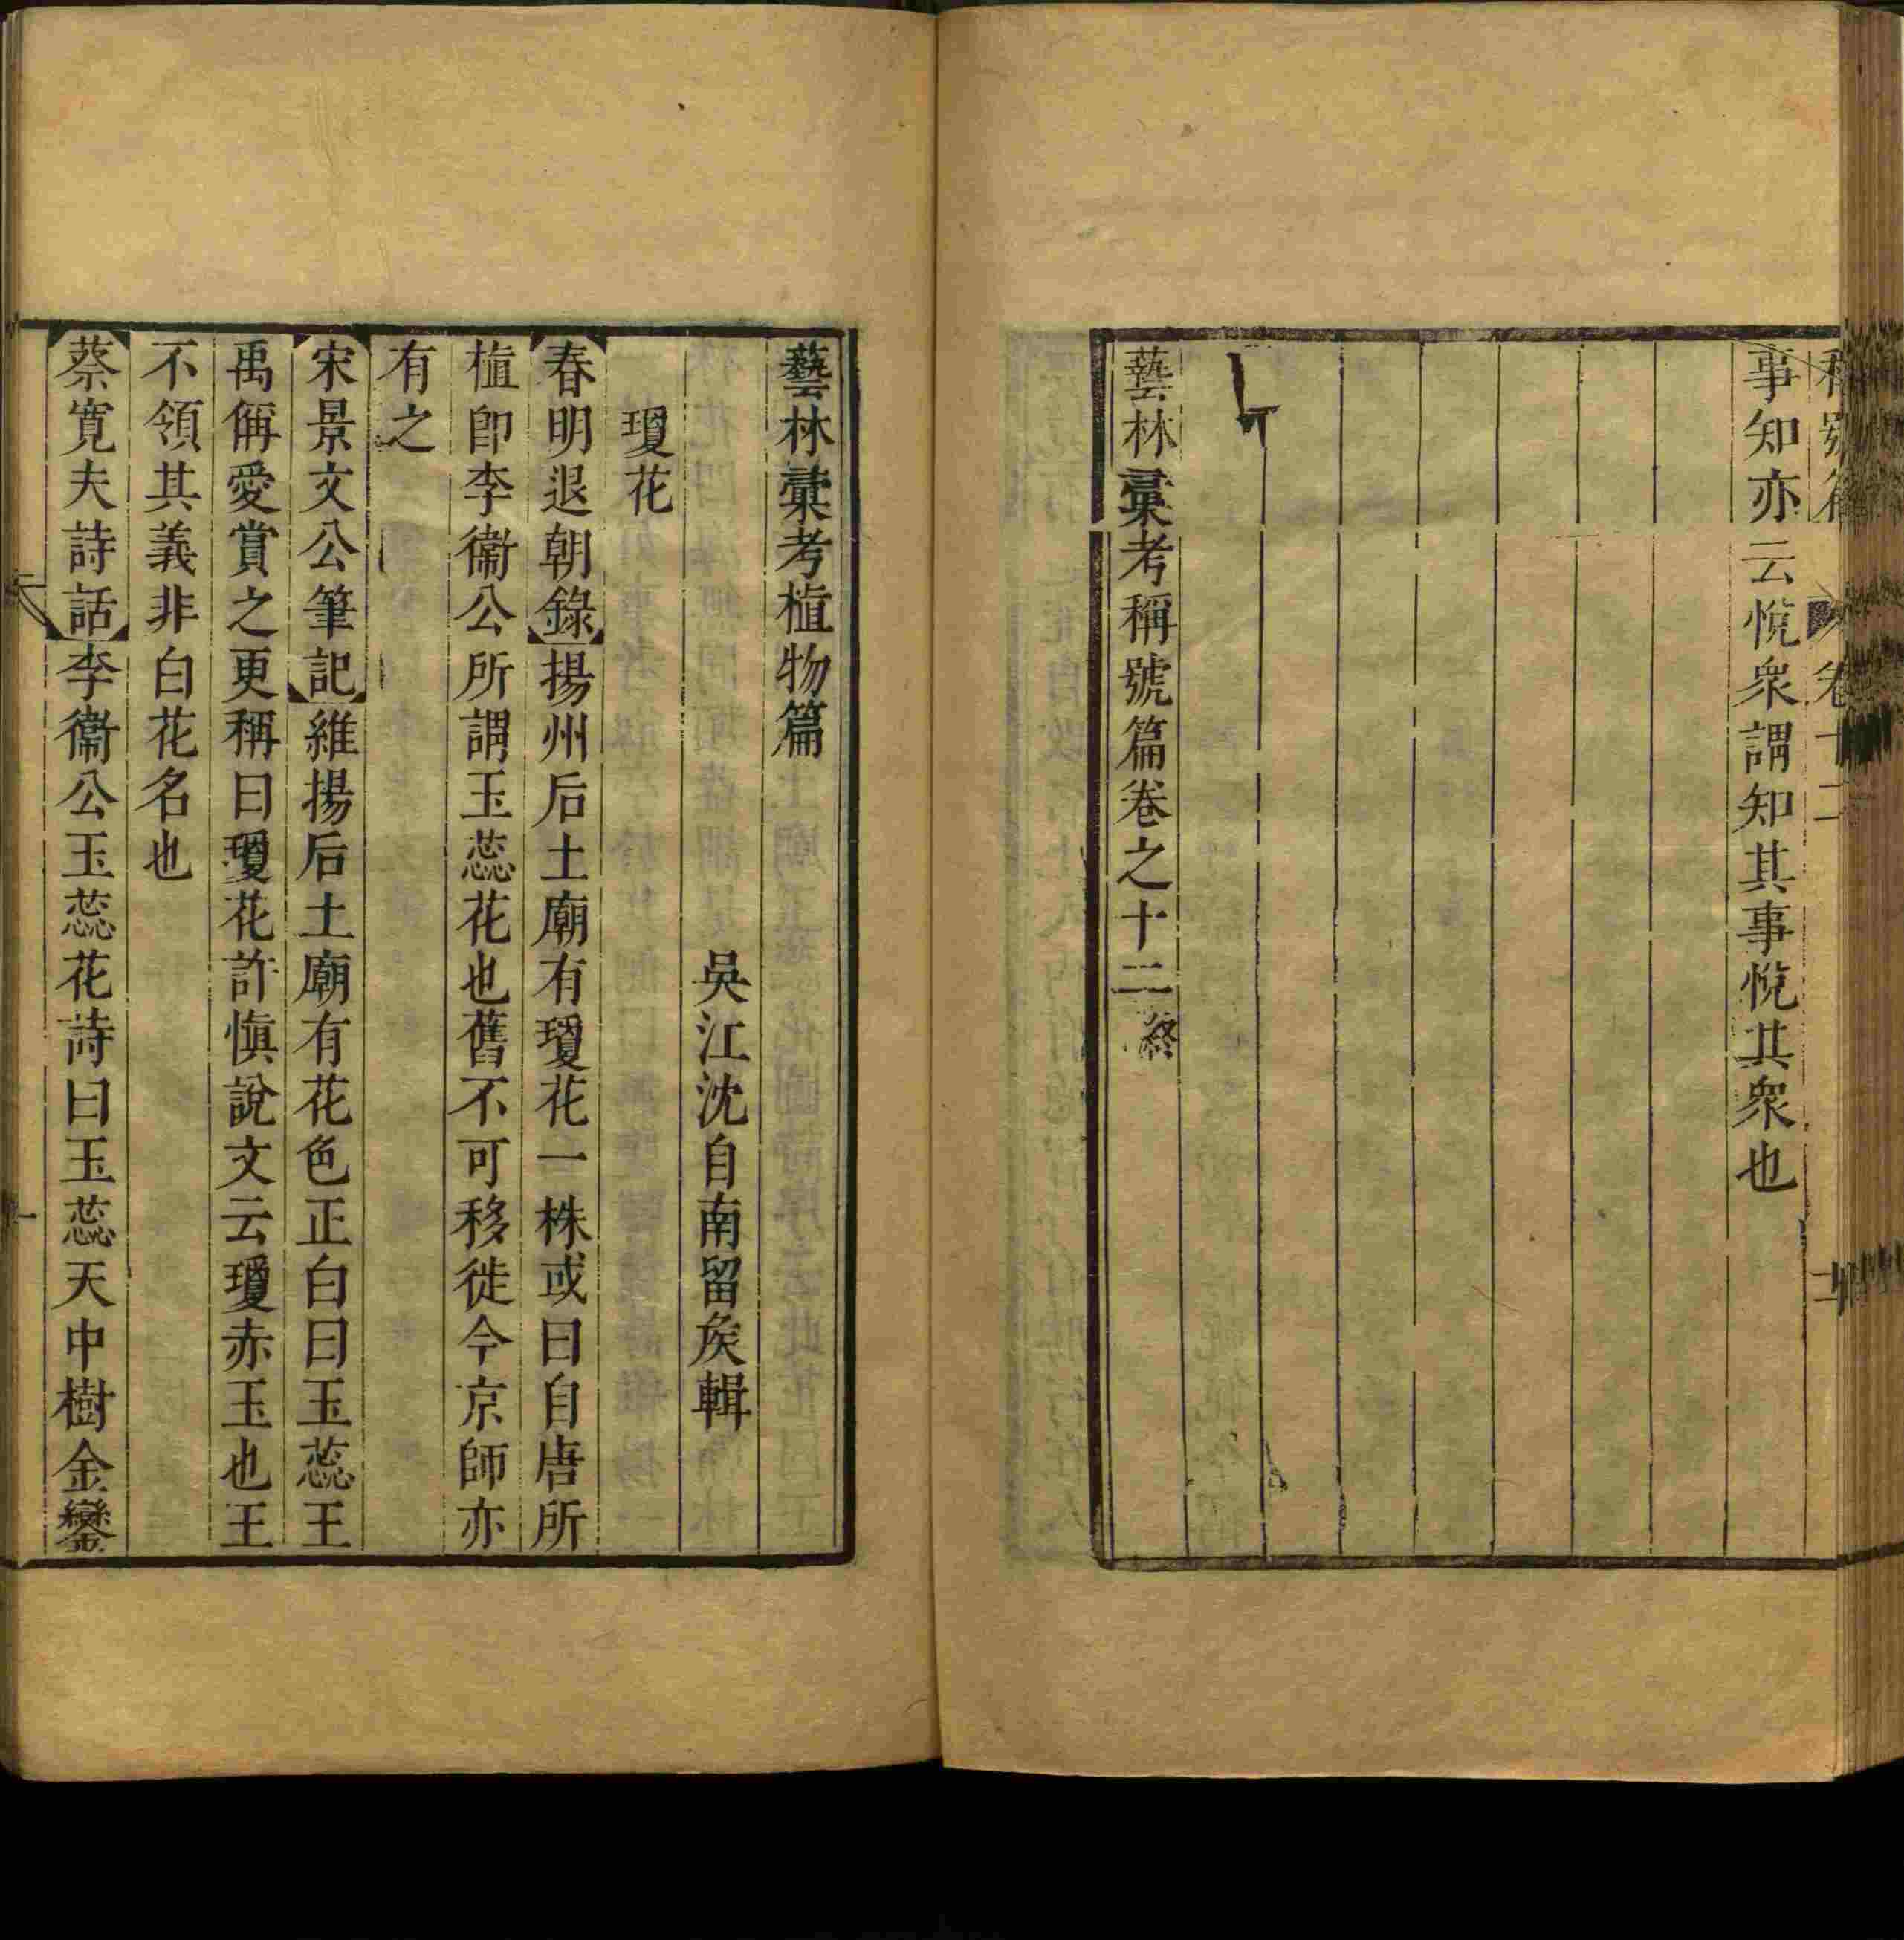 卷十二
事知亦云恱衆謂知其事恱其衆也
藝林彚考稱號篇卷之十二終
藝林彚考植物篇
吳江沈自南留矦輯
瓊花
春明退朝錄揚州后土廟有瓊花一株或曰自唐所
植卽李衞公所謂玉蕊花也舊不可移徙今京師亦
有之
宋景文公筆記維揚后土廟有花色正白曰玉蕊王
禹偁愛賞之更稱曰瓊花許愼說文云瓊赤玉也王
不領其義非白花名也
蔡寬夫詩話李衞公玉蕊花詩曰玉蕊天中樹金鑾